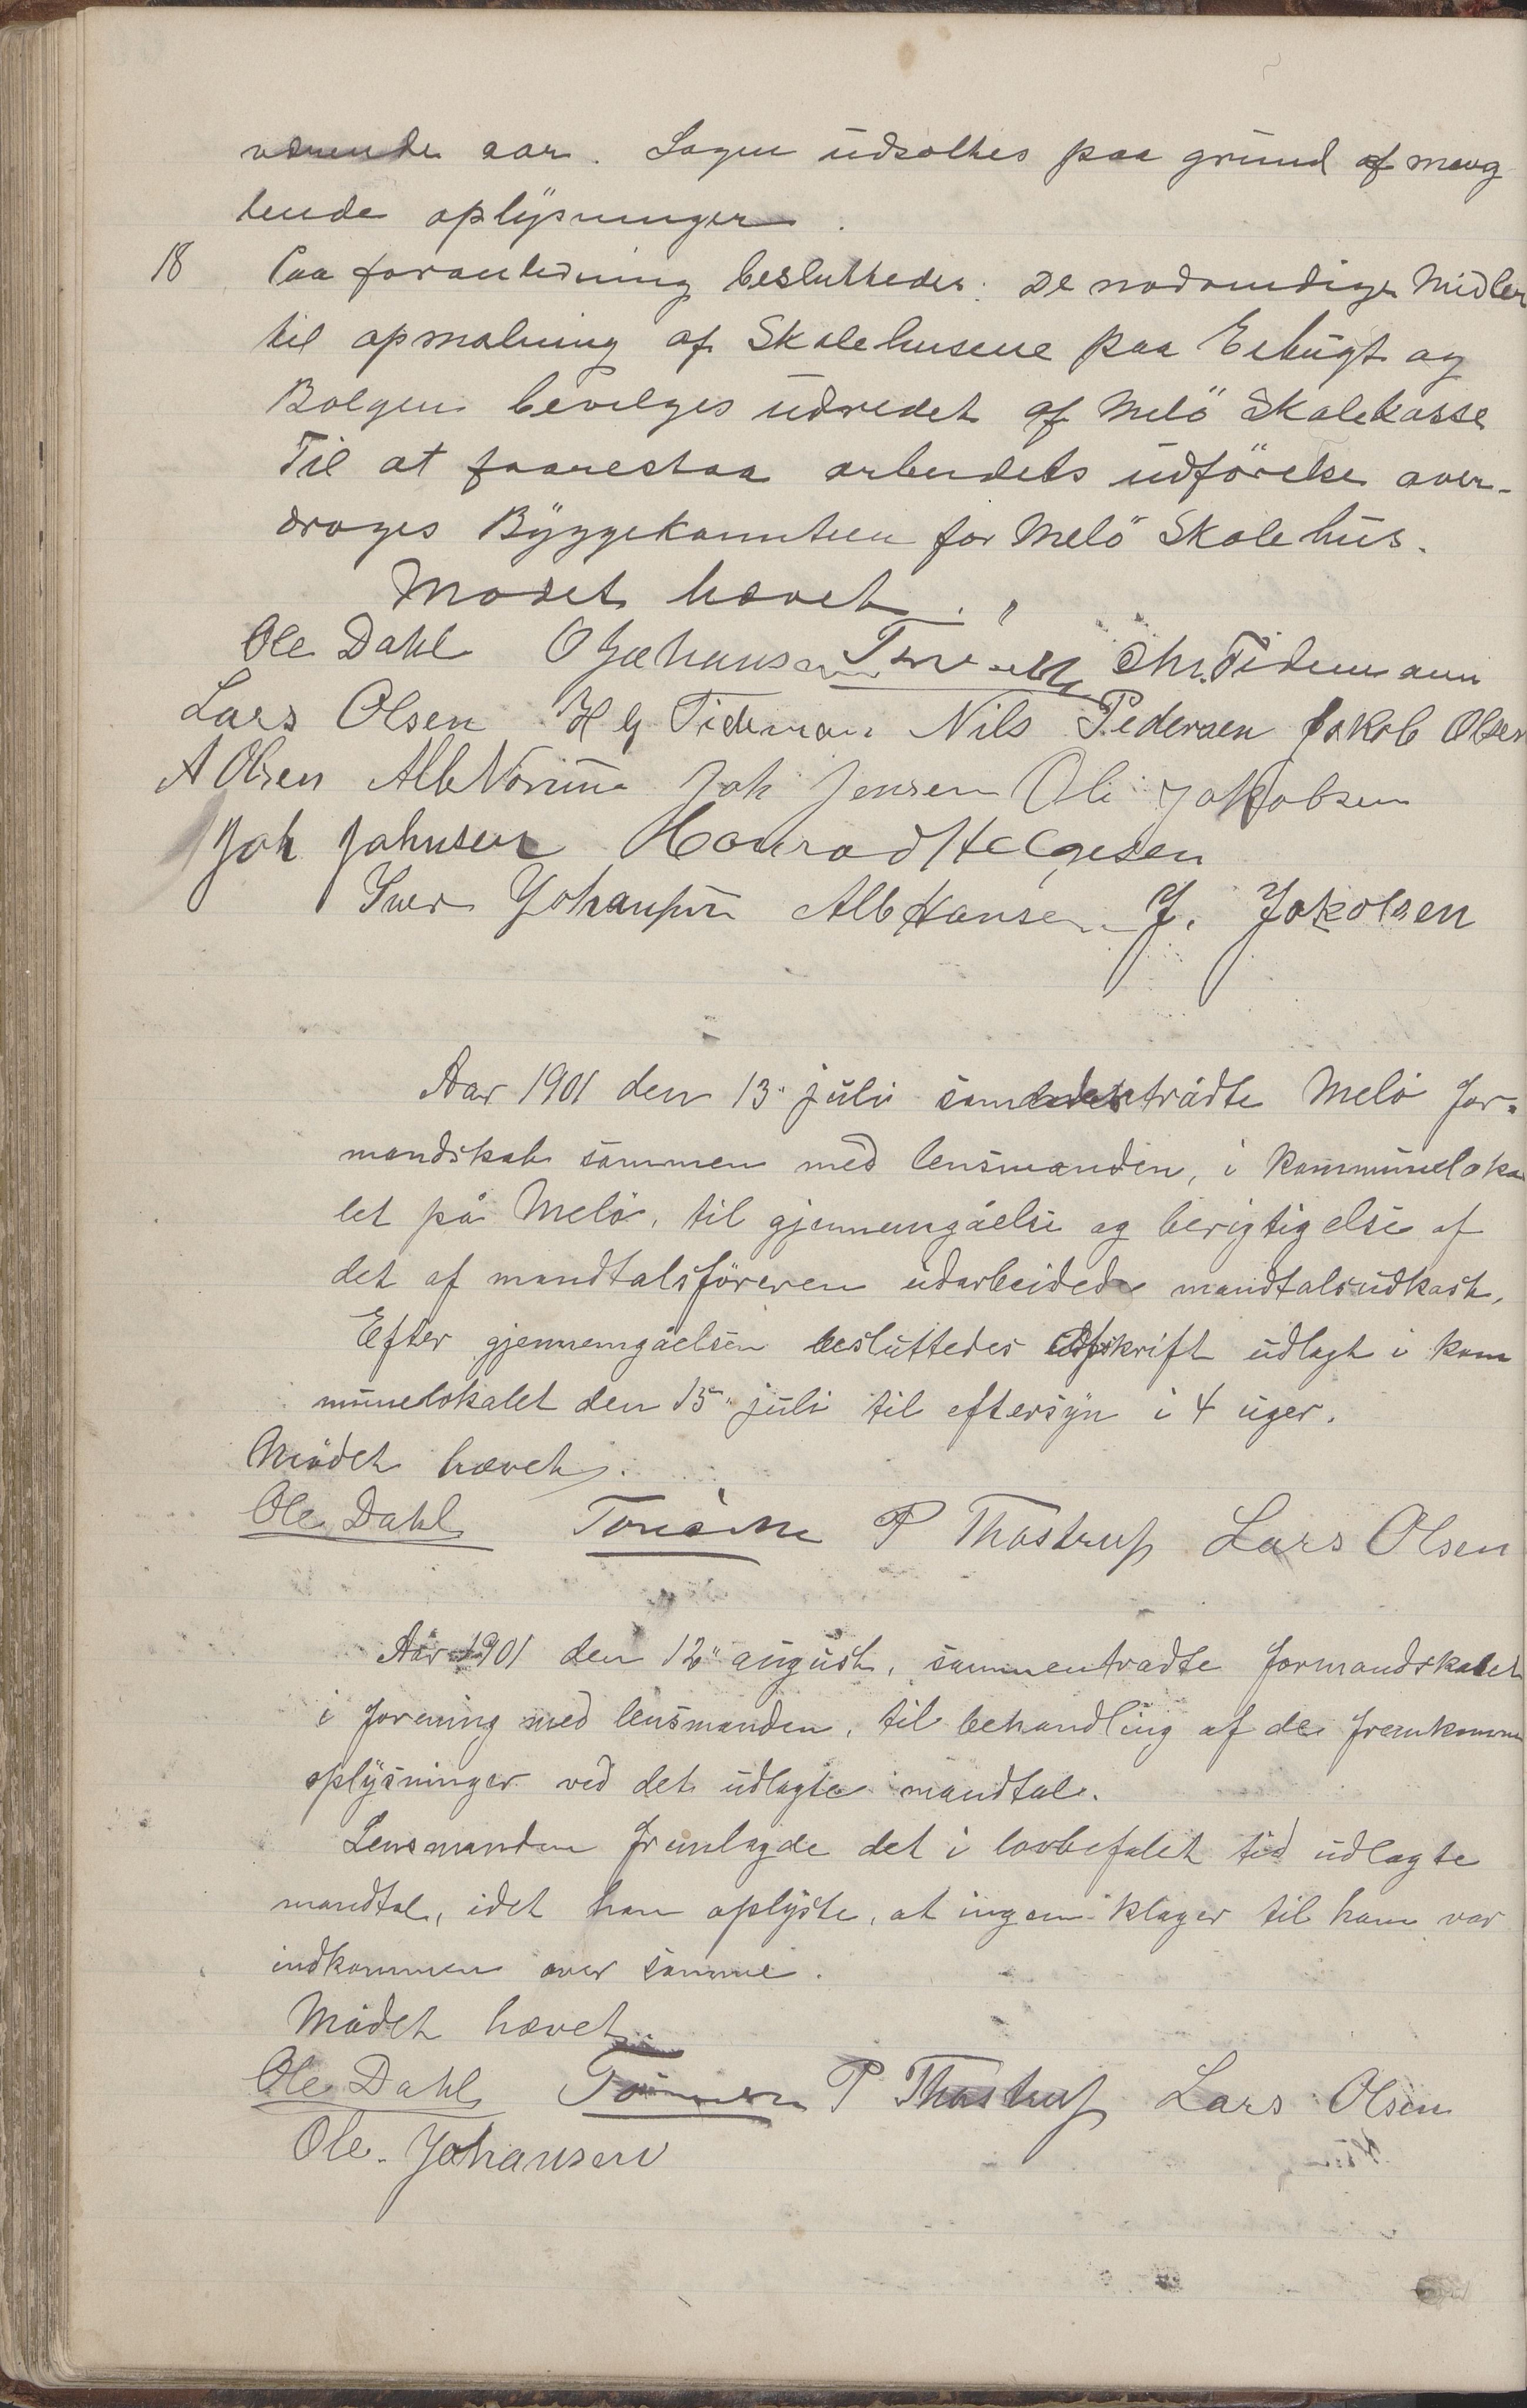 værende aar. Sagen udsattes paa grund af mang
lende oplysninger.
18 Paa foranledning besluttedes: De nødvendige Midler
til opmaling af Skolehusene paa Esbugt og
Bolgen bevilges udredet af Melö Skolekasse
Til at forestaa arbeidets udförelse over-
drages Byggekomiteen for Melö Skolehus.
Mødet hævet.
Ole Dahl O Johansen Chr. Tidemann
Lars Olsen H G Tideman Nils Pedersen Jakob Olsen
A Olsen Joh Jensen Ole Jakobsen
Joh Johnsen Konrad Helgesen
Iver Johansen Alb Hansen J. Jakobsen
Aar 1901 den 13" juli sammentrådte Melö for-
mandskab sammen med lensmanden, i kommuneloka
let på Melö, til gjennemgåelse og berigtigelse af
det af mandtalsföreren udarbeidede mandtalsudkast.
Efter gjennemgåelsen besluttedes udskrift udlagt i kom
munelokalet den 15" juli til eftersyn i 4 uger.
Mödet hævet.
Ole Dahl P Thostrup Lars Olsen
Aar 1901 den 12" august, sammentradte formandskabet
i forening med lensmanden, til behandling af de fremkomne
oplysninger ved det udlagte mandtal.
Lensmanden fremlagde det i lovbefalet tid udlagte
mandtal, idet han oplyste, at ingen klager til ham var
indkommen over samme.
Mödet hævet.
Ole Dahl P Thostrup Lars Olsen
Ole Johansen